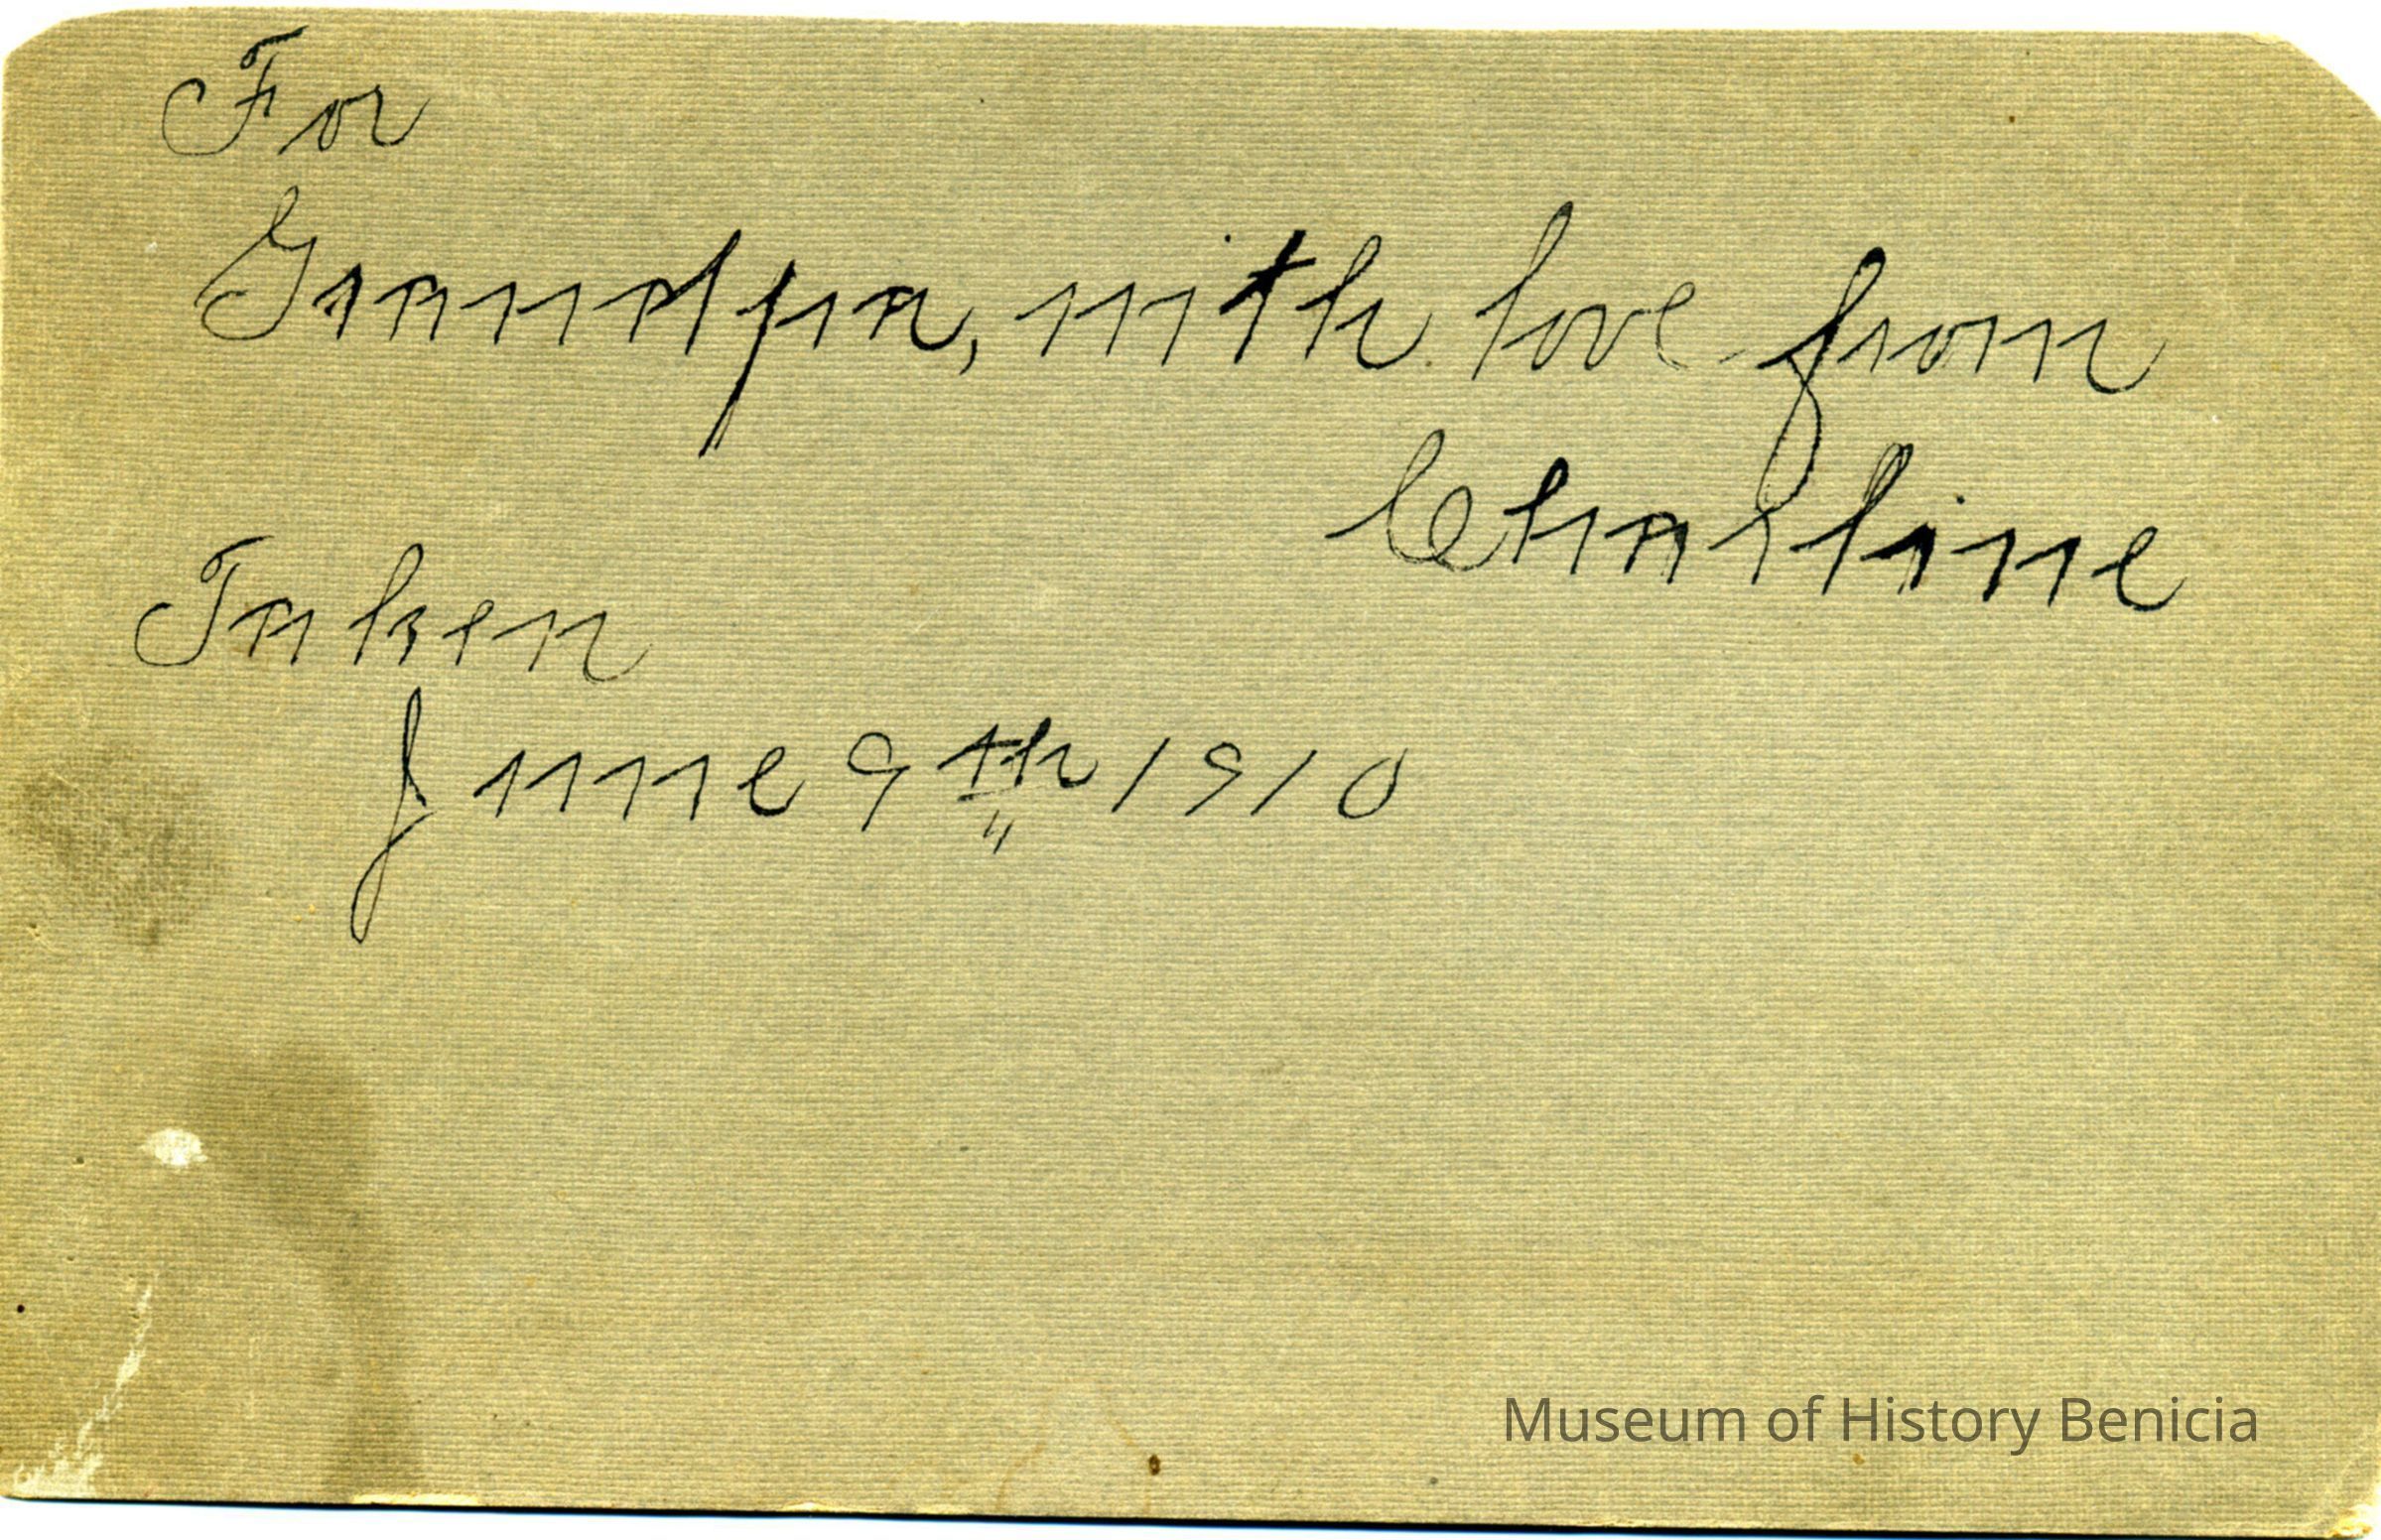 For
Grandpa, with love from
Charline
Taken
June 9th 1910
Museum of History Benicia